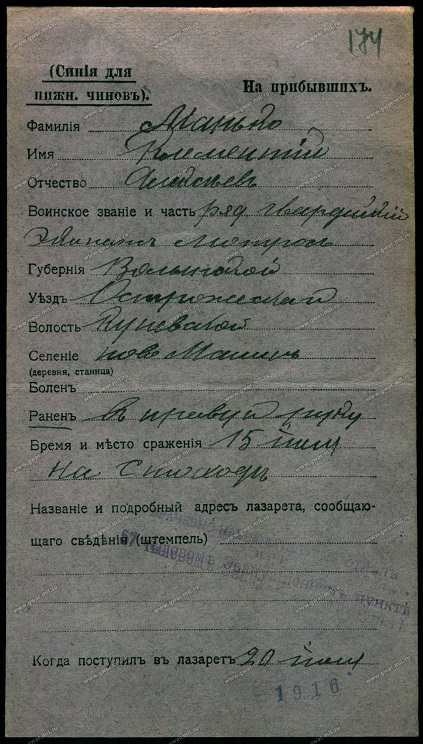 174
(Синія для
нижн. чиновъ).
На прибывшихъ.
Фамилія Манько
Имя Климентій
Отчество
Воинское званіе и часть ряд гвардейскій
Экипажъ Матрос
Губернія Волынской
Уѣздъ Острожскій
Волость Куневской
Селеніе Нове
(деревня, станица)
Боленъ
Раненъ в правую руку
Время и мѣсто сраженія 15 іюля
на Стоходѣ
Названіе и подробный адресъ лазарета, сообщаю-
щаго свѣдѣнія (штемпель)
пунктѣ
Когда поступилъ въ лазаретъ 20 іюля
1916